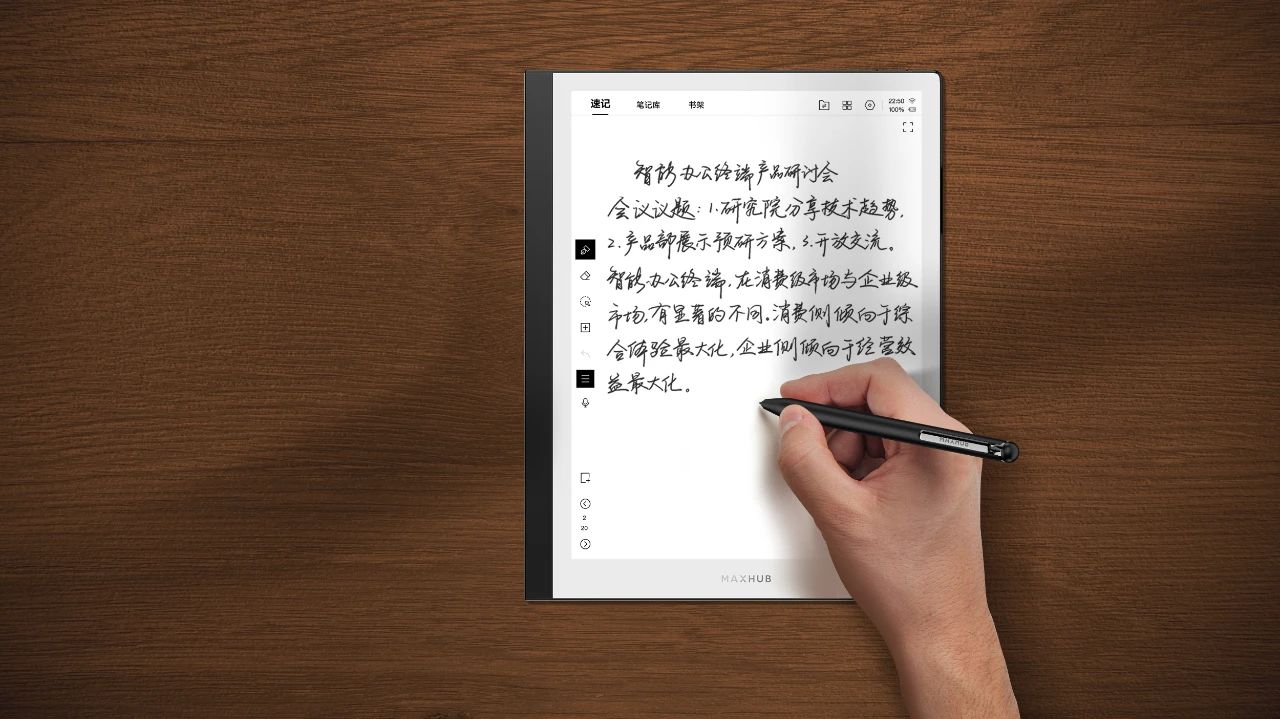 速记 笔记库 书架 22:50 100%
智能办公终端产品研讨会
会议议题：1.研究院分享技术趋势，
2.产品部展示预研方案，3.开放交流。
智能办公终端，在消费级市场与企业级
市场，有显著的不同。消费侧倾向于综
合体验最大化，企业侧倾向于经营效
益最大化。
2
20
MAXHUB
MAXHUB